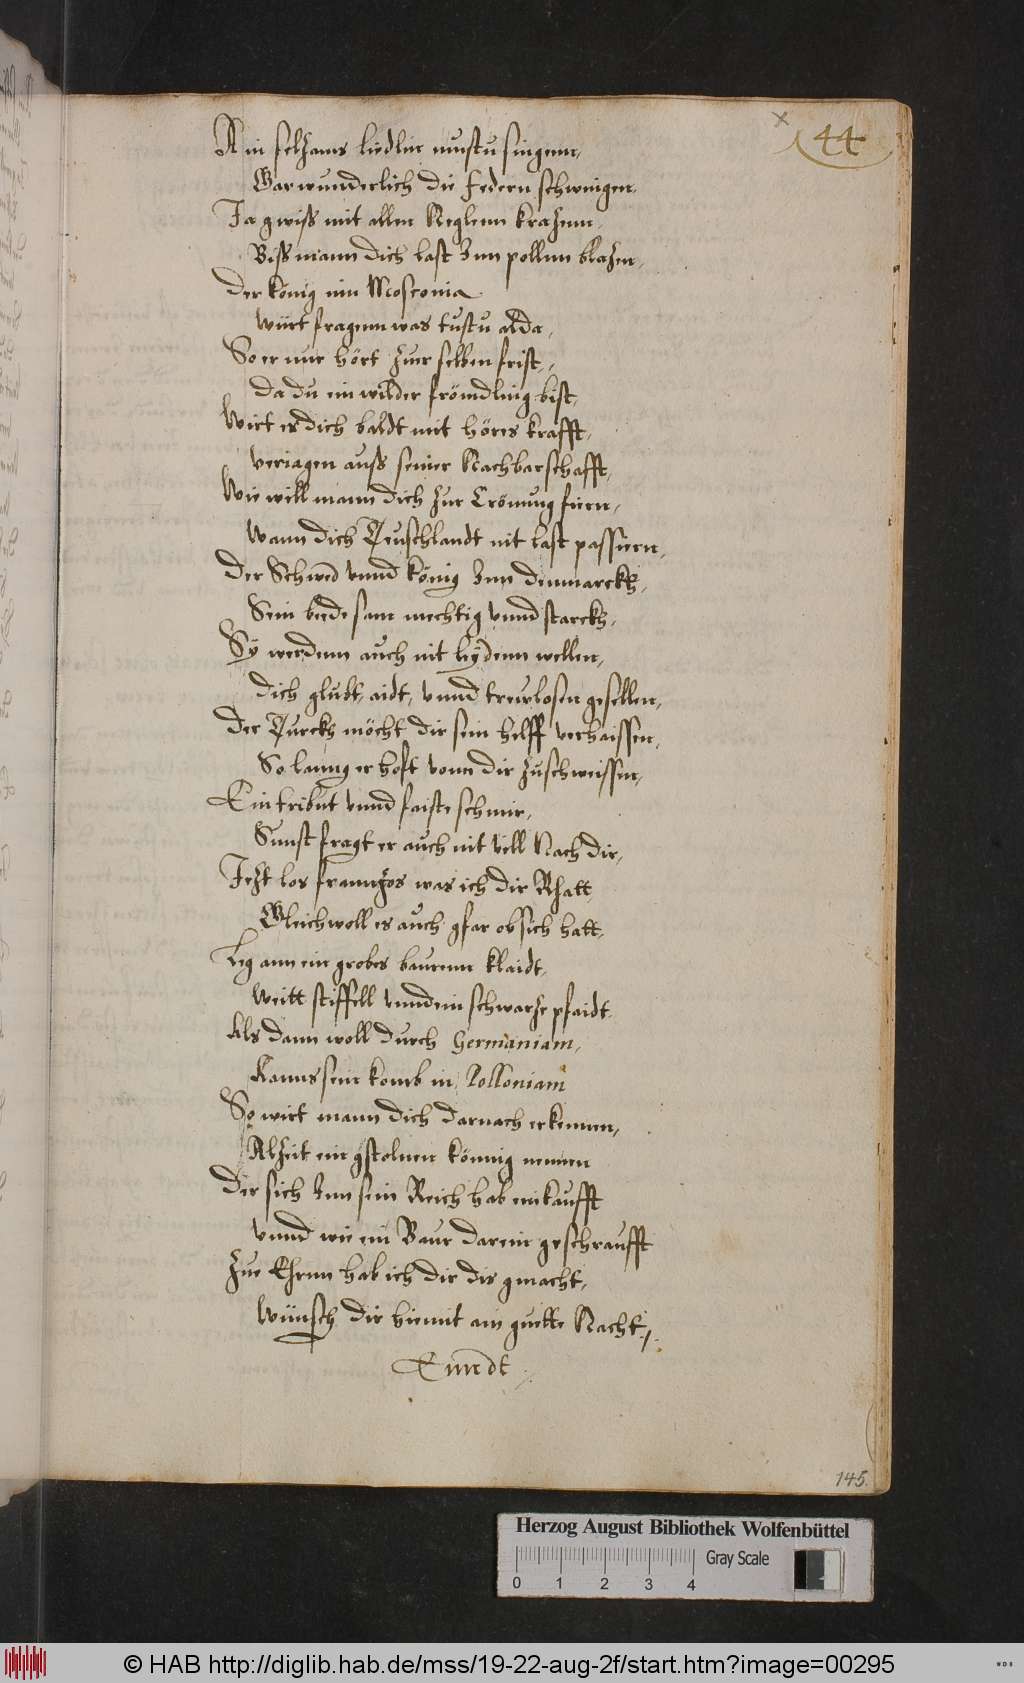 44
Ain selzams liedlin mustu singenn,
Gar wunderlich die federn schwingen.
Ja gwiss mit allen Neglenn krazenn,
Biss mann dich last Inn pollnn blazen,
Der König inn Mosconia
würt fragenn was tustu alda,
So er nur hört zuer selben frist,
Da du ein wilder frömdling bist,
Wirt er dich baldt mit höres krafft,
veriagen auss seiner Nachbarschafft,
Wie will mann dich zur Crönung füern,
Wann dich Teuschlandt nit last passiern,
Der Schwed vnnd König Inn Denmarckh,
Sein beede sam mechtig vnnd starckh,
Sÿ werdenn auch nit leÿdenn wellen,
Dich glubt, aidt, vnnd trewlosen gesellen,
Der Turckh möcht dir sein helff verhaissen,
So lanng er hoft vonn dir zuschweissen,
Ein tribut vnnd faiste schmir,
Sunst fragt er auch nit vill Nach dir,
Jezt los frannzos was ich dir Rhatt
Gleichwoll es auch gfar ob sich hatt,
Leg ann ein grobes baurenn klaidt,
Weitt stiffell vnnd ein schwarze pfaidt
Als dann woll durch Germaniam,
Kanns sein komb in Polloniam
So wirt mann dich darnach erkennen,
Alzeit ein gstolnen könnig nennen
Der sich Inn sein Reich hab einkaufft
vnnd wie ein Baur darein geschraufft
Zue Ehrnn hab ich dir dis gmacht,
Wünsch dir hiemit ain guette Nacht,
Enndt
145.
Herzog August Bibliothek Wolfenbüttel
0 1 2 3 4 Gray Scale
© HAB http://diglib.hab.de/mss/19-22-aug-2f/start.htm?image=00295